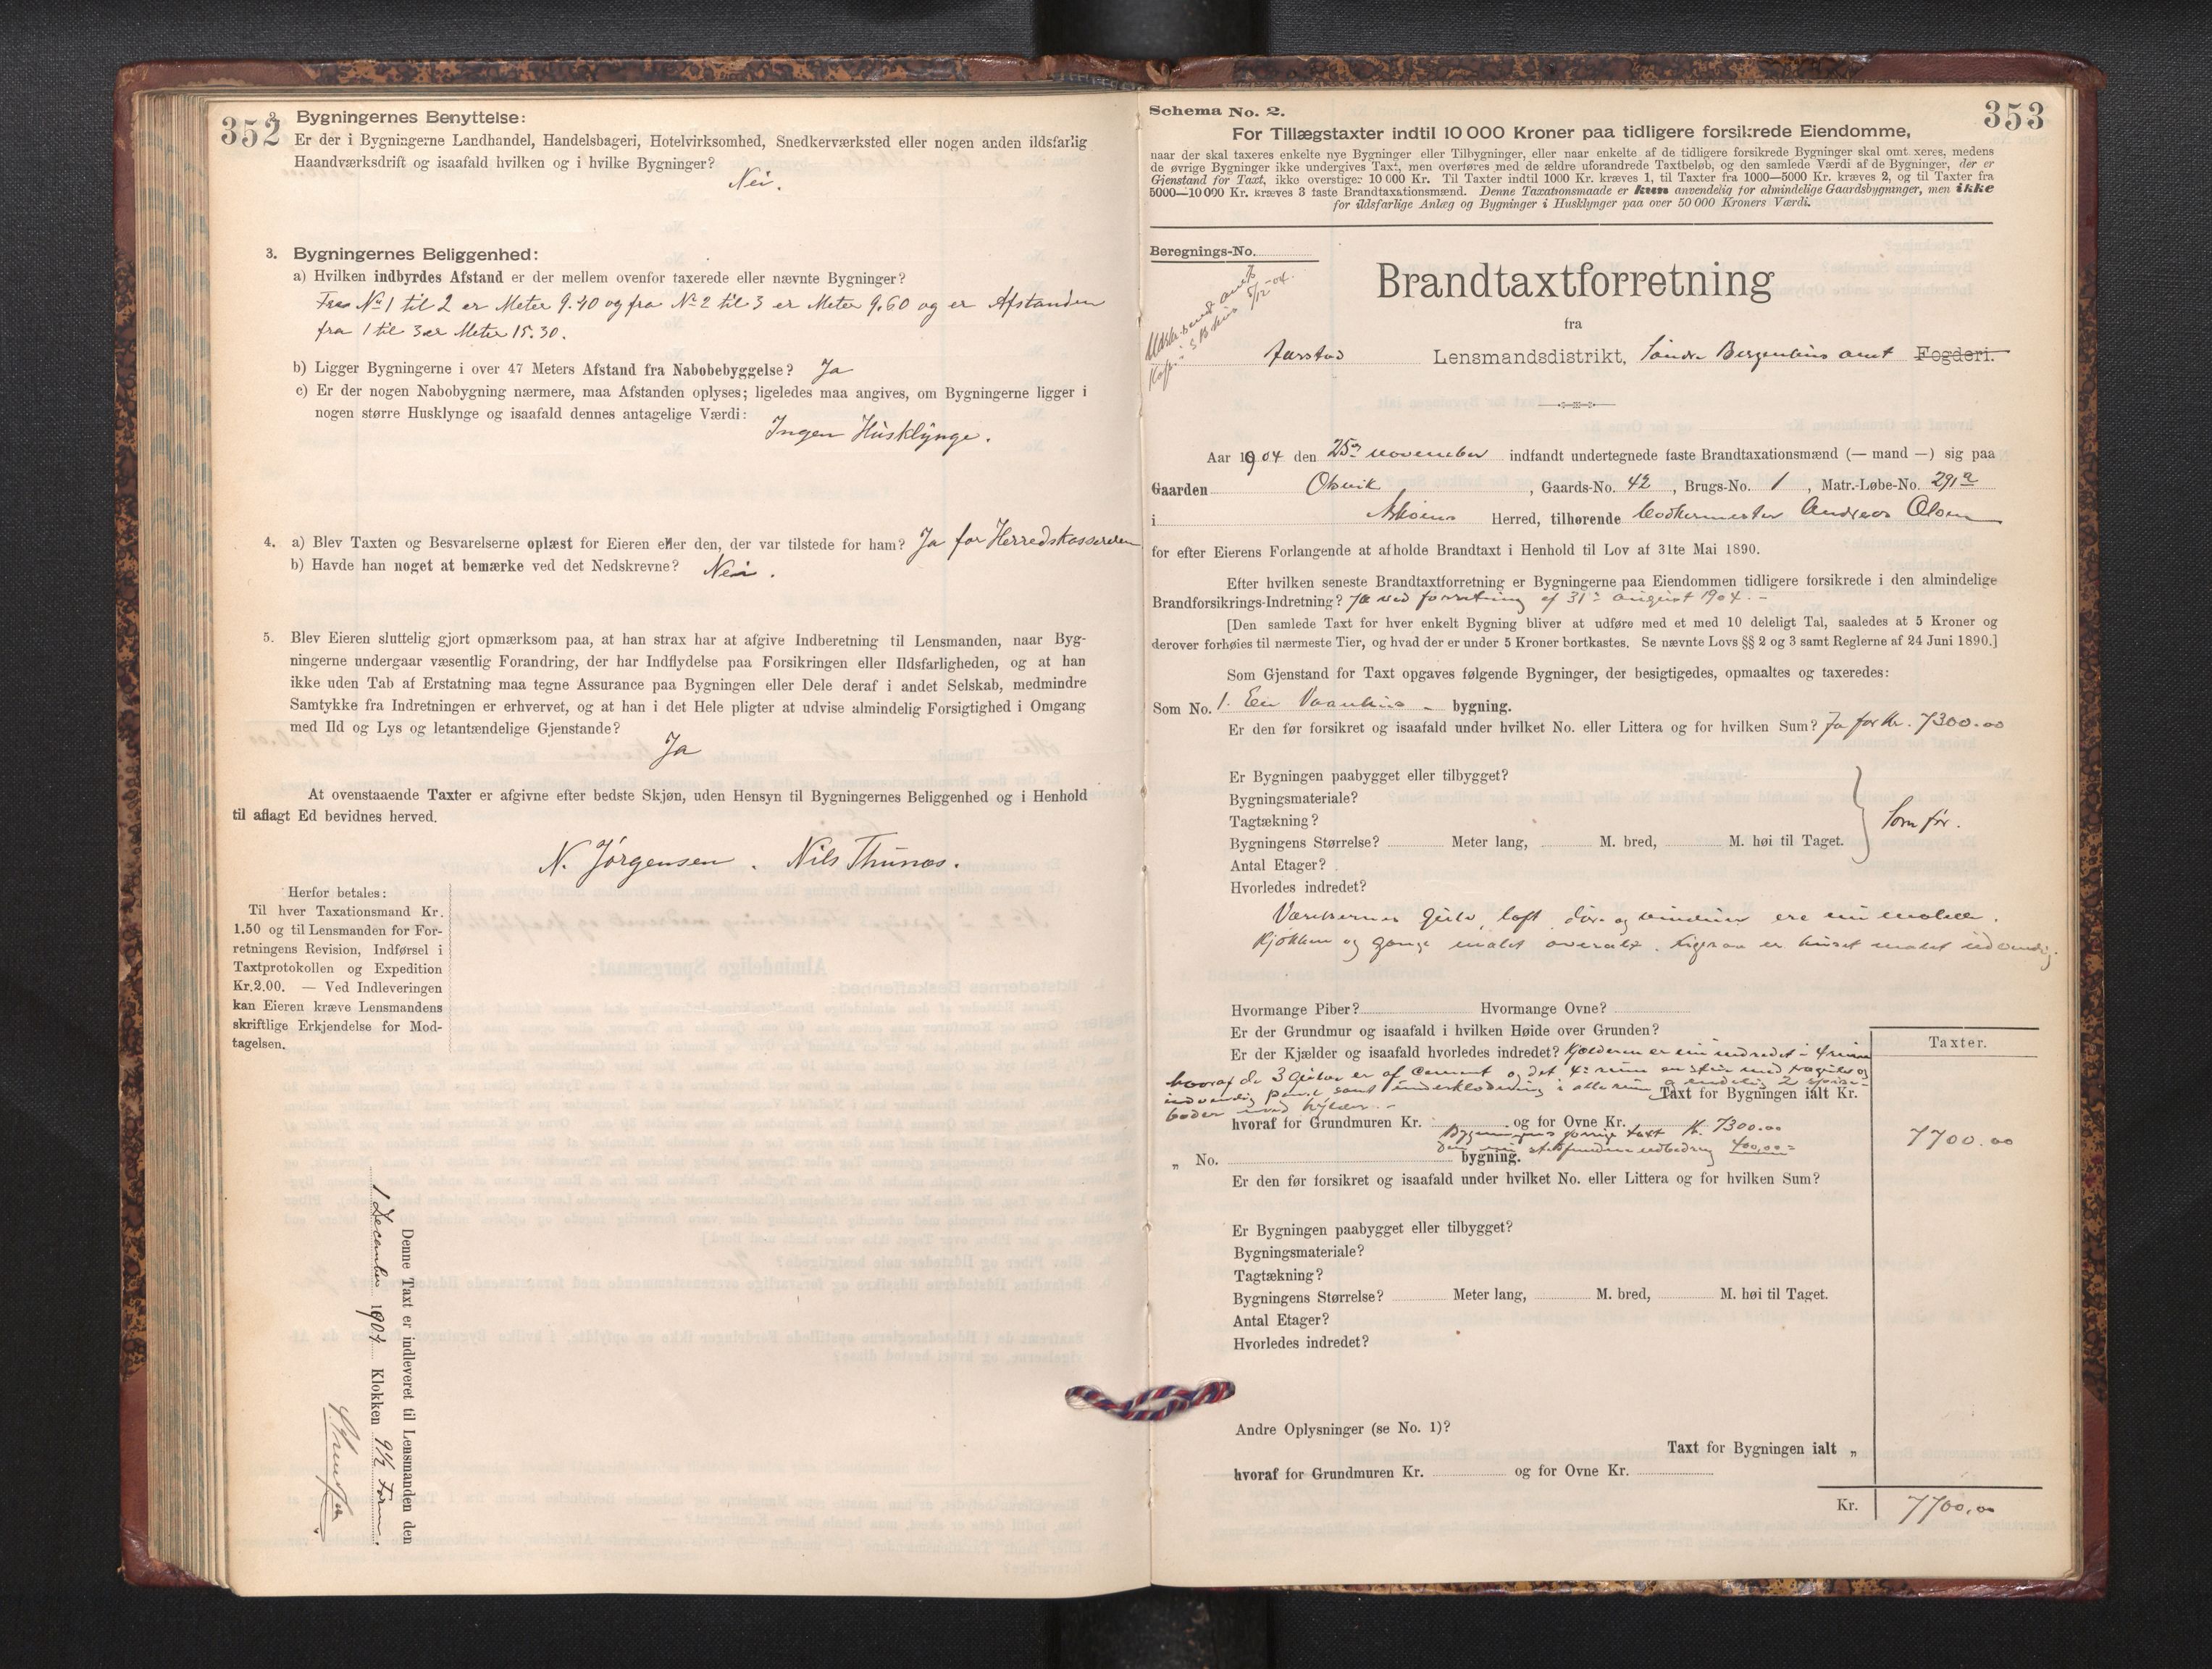 352
2. Bygningernes Benyttelse:
Er der i Bygningerne Landhandel, Handelsbageri, Hotelvirksomhed, Snedkerværksted eller nogen anden ildsfarlig
Haandværksdrift og isaafald hvilken og i hvilke Bygninger?
Nei.
3. Bygningernes Beliggenhed:
a) Hvilken indbyrdes Afstand er der mellem ovenfor taxerede eller nævnte Bygninger?
Fra No 1 til 2 er Meter 9.40 og fra No 2 til 3 er Meter 9.60 og er Afstanden
fra 1 til 3 er Meter 15.30.
b) Ligger Bygningerne i over 47 Meters Afstand fra Nabobebyggelse? Ja
c) Er der nogen Nabobygning nærmere, maa Afstanden oplyses; ligeledes maa angives, om Bygningerne ligger i
nogen større Husklynge og isaafald dennes antagelige Værdi:
Ingen Husklynge.
4. a) Blev Taxten og Besvarelserne oplæst for Eieren eller den, der var tilstede for ham? Ja for Herredskassereren
b) Havde han noget at bemærke ved det Nedskrevne? Nei.
5. Blev Eieren sluttelig gjort opmærksom paa, at han strax har at afgive Indberetning til Lensmanden, naar Byg-
ningerne undergaar væsentlig Forandring, der har Indflydelse paa Forsikringen eller Ildsfarligheden, og at han
ikke uden Tab af Erstatning maa tegne Assurance paa Bygningen eller Dele deraf i andet Selskab, medmindre
Samtykke fra Indretningen er erhvervet, og at han i det Hele pligter at udvise almindelig Forsigtighed i Omgang
med Ild og Lys og letantændelige Gjenstande?
Ja
At ovenstaaende Taxter er afgivne efter bedste Skjøn, uden Hensyn til Bygningernes Beliggenhed og i Henhold
til aflagt Ed bevidnes herved.
N. Jørgensen. Nils Thunes.
Herfor betales:
Til hver Taxationsmand Kr.
1.50 og til Lensmanden for For-
retningens Revision, Indførsel i
Taxtprotokollen og Expedition
Kr.2.00. — Ved Indleveringen
kan Eieren kræve Lensmandens
skriftlige Erkjendelse for Mod-
tagelsen.
Denne Taxt er indleveret til Lensmanden den
1 December 1904 Klokken 9½ Form.
353
Schema No. 2.
For Tillægstaxter indtil 10 000 Kroner paa tidligere forsikrede Eiendomme,
naar der skal taxeres enkelte nye Bygninger eller Tilbygninger, eller naar enkelte af de tidligere forsikrede Bygninger skal omtaxeres, medens
de øvrige Bygninger ikke undergives Taxt, men overføres med de ældre uforandrede Taxtbeløb, og den samlede Værdi af de Bygninger, der er
Gjenstand for Taxt, ikke overstiger 10 000 Kr. Til Taxter indtil 1000 Kr. kræves 1, til Taxter fra 1000—5000 Kr. kræves 2, og til Taxter fra
5000—10 000 Kr. kræves 3 faste Brandtaxationsmænd. Denne Taxationsmaade er kun anvendelig for almindelige Gaardsbygninger, men ikke
for ildsfarlige Anlæg og Bygninger i Husklynger paa over 50 000 Kroners Værdi.
Beregnings-No.
5/12-04.
Brandtaxtforretning
fra
Aarstad Lensmandsdistrikt, Søndre Bergenhus amt Fogderi.
Aar 1904 den 25de november indfandt undertegnede faste Brandtaxationsmænd (— mand —) sig paa
Gaarden Olsvik, Gaards-No. 42, Brugs-No. 1, Matr.-Løbe-No. 291a
i Askøens Herred, tilhørende Andreas Olsen
for efter Eierens Forlangende at afholde Brandtaxt i Henhold til Lov af 31te Mai 1890.
Efter hvilken seneste Brandtaxtforretning er Bygningerne paa Eiendommen tidligere forsikrede i den almindelige
Brandforsikrings-Indretning? Ja ved forretning af 31te august 1904.-
[Den samlede Taxt for hver enkelt Bygning bliver at udføre med et med 10 deleligt Tal, saaledes at 5 Kroner og
derover forhøies til nærmeste Tier, og hvad der er under 5 Kroner bortkastes. Se nævnte Lovs §§ 2 og 3 samt Reglerne af 24 Juni 1890.]
Som Gjenstand for Taxt opgaves følgende Bygninger, der besigtigedes, opmaaltes og taxeredes:
Som No. 1. En Vaanhus - bygning.
Er den før forsikret og isaafald under hvilket No. eller Littera og for hvilken Sum? Ja for Kr. 7300.00
Er Bygningen paabygget eller tilbygget?
Bygningsmateriale?
Tagtækning?
Bygningens Størrelse? Meter lang, M. bred, M. høi til Taget.
Som før.
Antal Etager?
Hvorledes indredet?
Værelsernes gulv, loft, døre og vinduer ere nu malede.
Kjøkken og gange malet overalt. Ligesaa er huset malet udvendig.
Hvormange Piber? Hvormange Ovne?
Er der Grundmur og isaafald i hvilken Høide over Grunden?
Er der Kjælder og isaafald hvorledes indredet? Kjælderen er nu indredet i 4 rum
hvoraf de 3 gulve er af cement og det 4de rum
indvendig panel samt underklædning i alle rum
boder med hylder.-
Taxt for Bygningen ialt Kr.
hvoraf for Grundmuren Kr. og for Ovne Kr.
Bygningens forrige taxt Kr. 7300.00
Den nu stedfundne udbedring 400,00
Taxter.
7700.00
„ No. bygning.
Er den før forsikret og isaafald under hvilket No. eller Littera og for hvilken Sum?
Er Bygningen paabygget eller tilbygget?
Bygningsmateriale?
Tagtækning?
Bygningens Størrelse? Meter lang, M. bred, M. høi til Taget.
Antal Etager?
Hvorledes indredet?
Andre Oplysninger (se No. 1)?
Taxt for Bygningen ialt „
hvoraf for Grundmuren Kr. og for Ovne Kr.
Kr. 7700,00